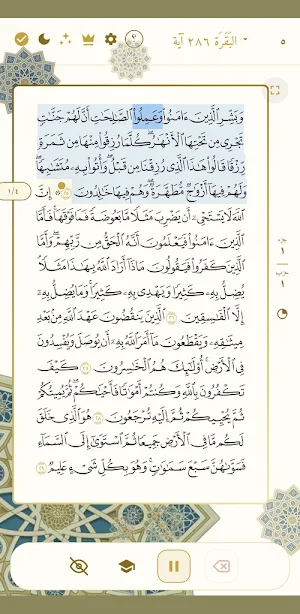 ٥
البَقَرَة ٢٨٦ آية
وَبَشِّرِ ٱلَّذِينَ ءَامَنُوا۟ وَعَمِلُوا۟ ٱلصَّٰلِحَٰتِ أَنَّ لَهُمْ جَنَّٰتٍ
تَجْرِى مِن تَحْتِهَا ٱلْأَنْهَٰرُ ۖ كُلَّمَا رُزِقُوا۟ مِنْهَا مِن ثَمَرَةٍ
رِّزْقًا ۙ قَالُوا۟ هَٰذَا ٱلَّذِى رُزِقْنَا مِن قَبْلُ ۖ وَأُتُوا۟ بِهِۦ مُتَشَٰبِهًا ۖ
وَلَهُمْ فِيهَآ أَزْوَٰجٌ مُّطَهَّرَةٌ ۖ وَهُمْ فِيهَا خَٰلِدُونَ ۞ إِنَّ
ٱللَّهَ لَا يَسْتَحْىِۦٓ أَن يَضْرِبَ مَثَلًا مَّا بَعُوضَةً فَمَا فَوْقَهَا ۚ فَأَمَّا
ٱلَّذِينَ ءَامَنُوا۟ فَيَعْلَمُونَ أَنَّهُ ٱلْحَقُّ مِن رَّبِّهِمْ ۖ وَأَمَّا
ٱلَّذِينَ كَفَرُوا۟ فَيَقُولُونَ مَاذَآ أَرَادَ ٱللَّهُ بِهَٰذَا مَثَلًا ۘ
يُضِلُّ بِهِۦ كَثِيرًا وَيَهْدِى بِهِۦ كَثِيرًا ۚ وَمَا يُضِلُّ بِهِۦٓ
إِلَّا ٱلْفَٰسِقِينَ ٢٦ ٱلَّذِينَ يَنقُضُونَ عَهْدَ ٱللَّهِ مِنۢ بَعْدِ
مِيثَٰقِهِۦ وَيَقْطَعُونَ مَآ أَمَرَ ٱللَّهُ بِهِۦٓ أَن يُوصَلَ وَيُفْسِدُونَ
فِى ٱلْأَرْضِ ۚ أُو۟لَٰٓئِكَ هُمُ ٱلْخَٰسِرُونَ ٢٧ كَيْفَ
تَكْفُرُونَ بِٱللَّهِ وَكُنتُمْ أَمْوَٰتًا فَأَحْيَٰكُمْ ۖ ثُمَّ يُمِيتُكُمْ
ثُمَّ يُحْيِيكُمْ ثُمَّ إِلَيْهِ تُرْجَعُونَ ٢٨ هُوَ ٱلَّذِى خَلَقَ
لَكُم مَّا فِى ٱلْأَرْضِ جَمِيعًا ثُمَّ ٱسْتَوَىٰٓ إِلَى ٱلسَّمَآءِ
فَسَوَّىٰهُنَّ سَبْعَ سَمَٰوَٰتٍ ۚ وَهُوَ بِكُلِّ شَىْءٍ عَلِيمٌ ٢٩
١/٤
جزء
١
حزب
١